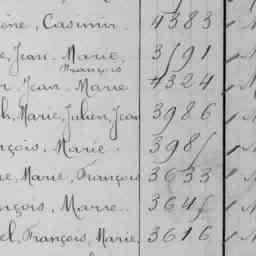 Casimir. 4383
Jean, Marie, 3591
François
Jean Marie 4324
Marie, Julien, Jean 3986
nçois, Marie. 3985
Marie, François 3633
nçois, Marie. 3645
el, François, Marie, 3616